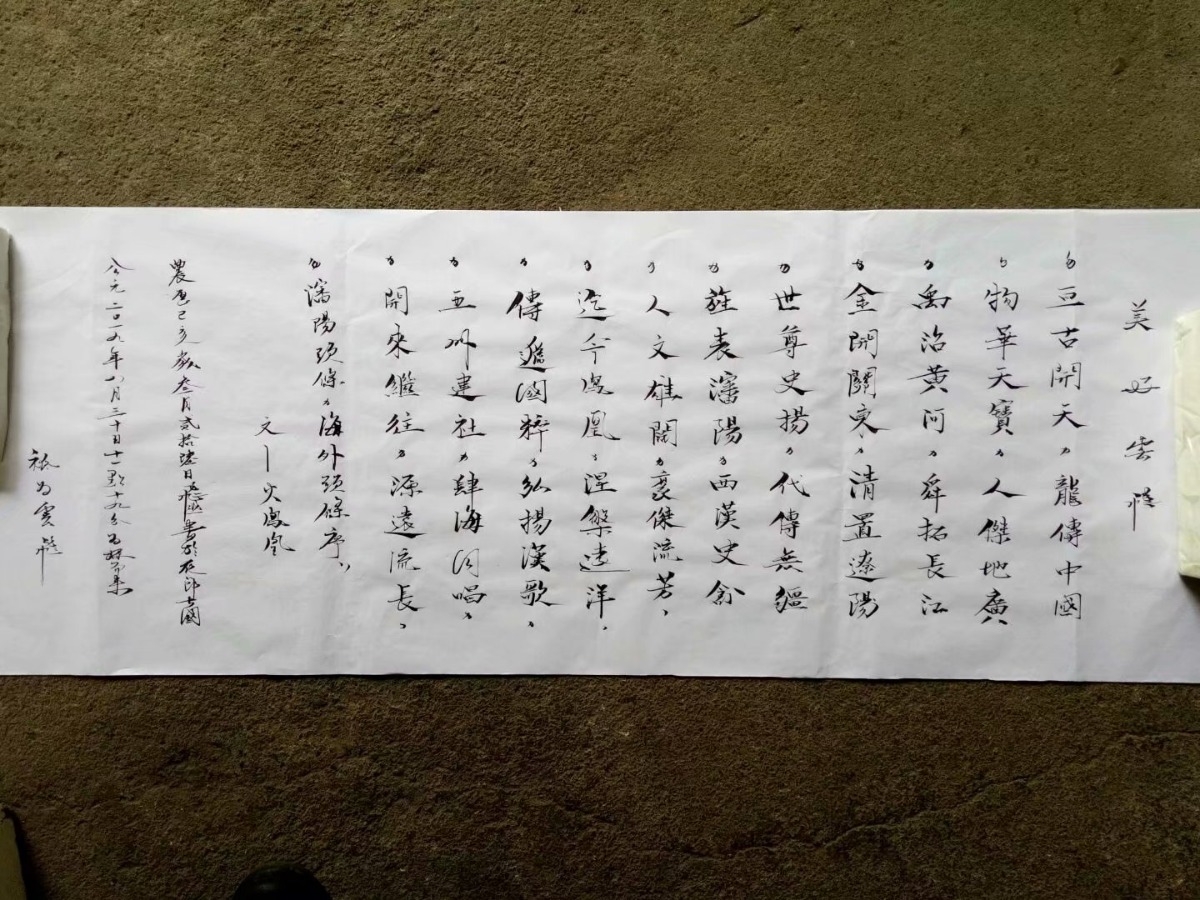 美好
亘古開天，龍傳中國
，物華天寶，人傑地廣
，禹治黃河，舜拓長江
，金開關東，清置遼陽
，世尊史揚，代傳無疆
，旌表瀋陽，西漢史
，人文雄闊，豪傑流芳，
，迄今鳳凰，涅槃遠洋，
，傳遞國粹，弘揚漢歌，
，五州建社，肆海同唱，
，開來繼往，源遠流長，
瀋陽頭條，海外頭條序，
文一火鳳凰
農歷己亥歲叁月貳拾 日 書於
公元二〇一九年 月三十日十一點十九分